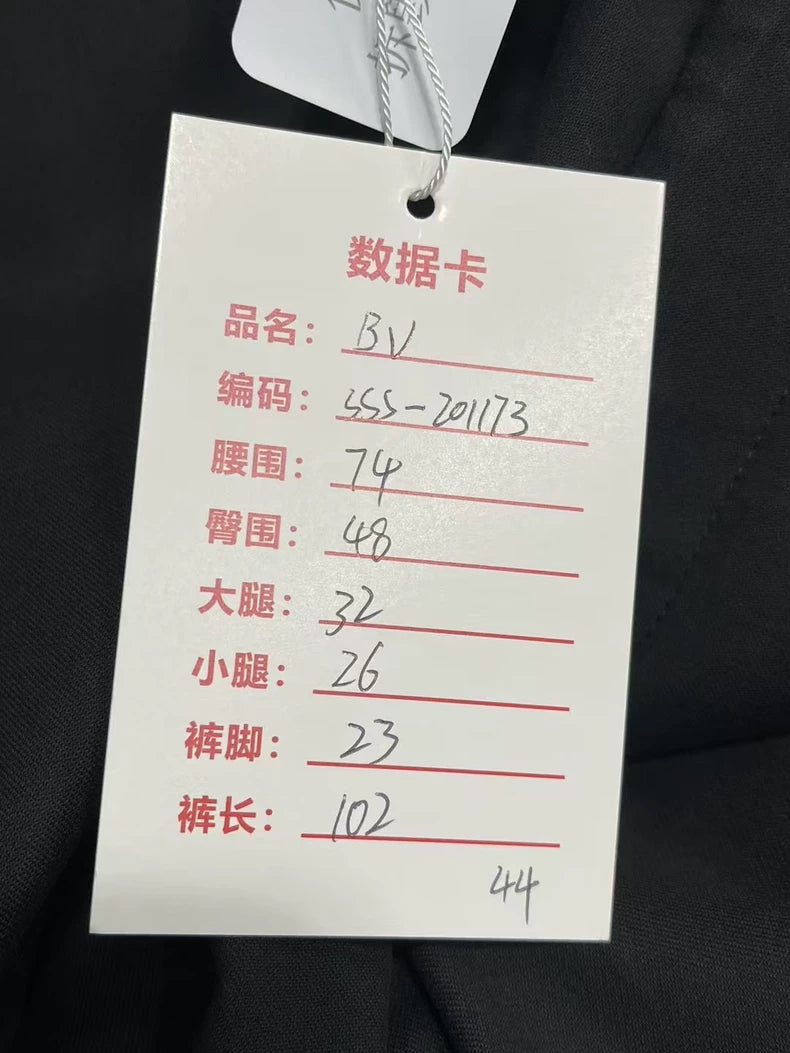 数据卡
品名: BV
编码: SSS-201173
腰围: 74
臀围: 48
大腿: 32
小腿: 26
裤脚: 23
裤长: 102
44